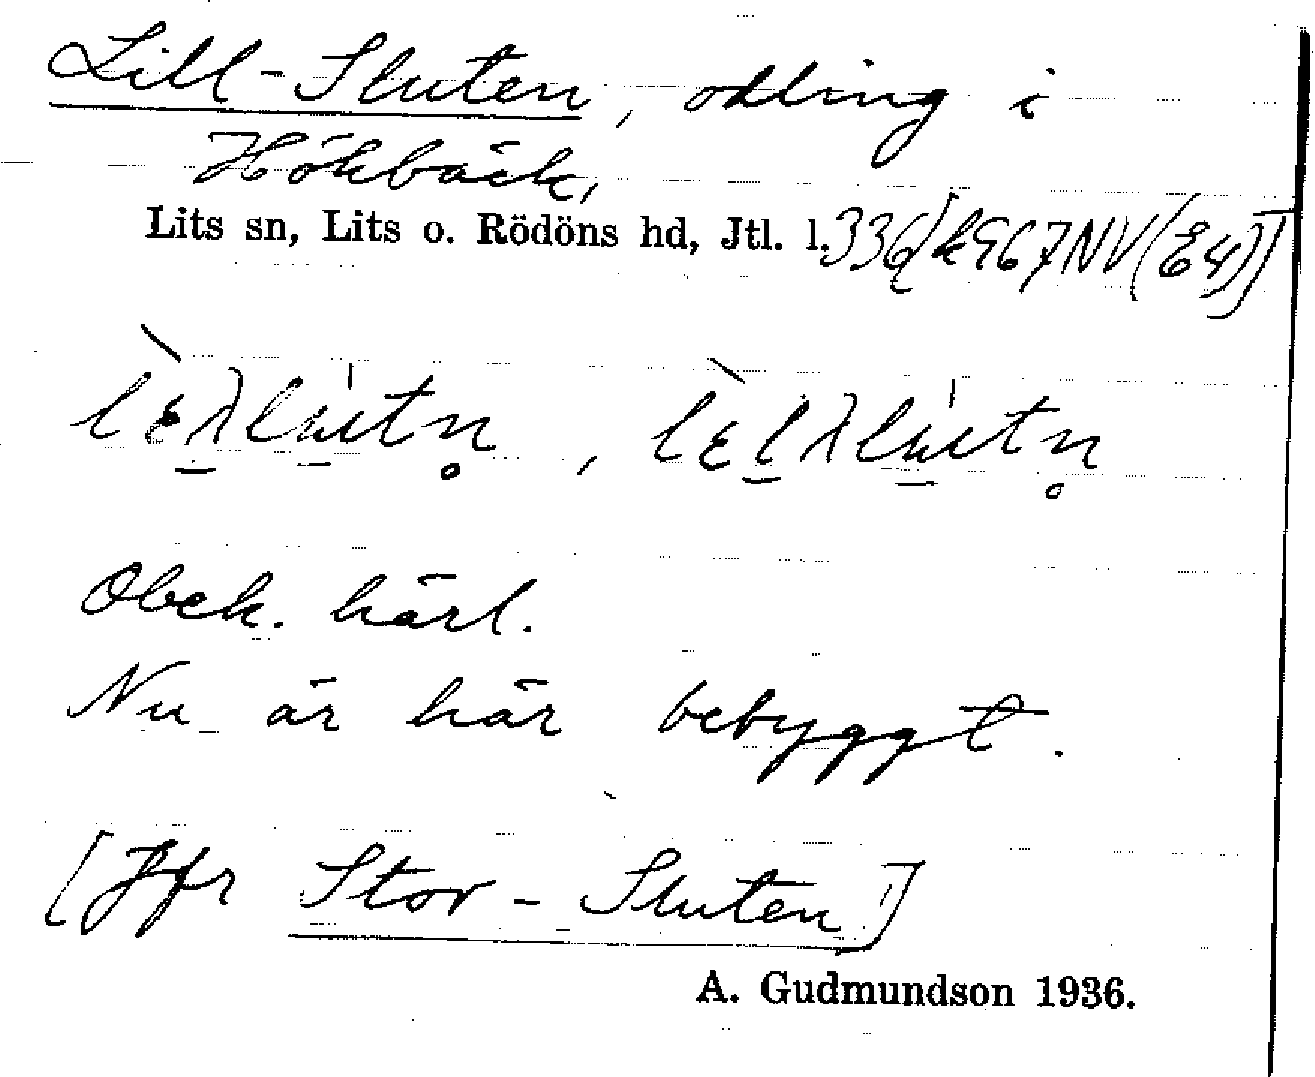 Lill-Sluten, odling i
Hökbäck,
Lits sn, Lits o. Rödöns hd, Jtl. l. 336 [k 967 NV (E4)]
Obek. härl.
Nu är här bebyggt.
[Jfr Stor-Sluten]
A. Gudmundson 1936.